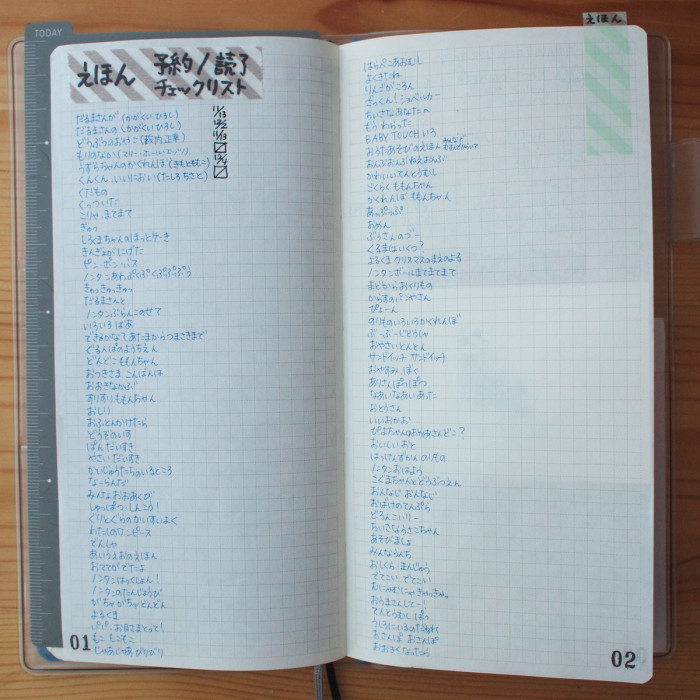 TODAY
えほん 予約/読了
チェックリスト
だるまさんが(かがくいひろし) 11/13
だるまさんの(かがくいひろし) 12/2
どうぶつのおやこ(薮内正幸) 11/13
もりのなか
うずらちゃんのかくれんぼ(きもとももこ) 12/4
くんくん いいにおい(たしろちさと)
くだもの
くっついた
こりゃ まてまて
ぎゅっ
しろくまちゃんのほっとけーき
きんぎょがにげた
ピン・ポン・バス
ノンタンあわぷくぷくぷぷぷう
きゅっきゅっきゅっ
だるまさんと
ノンタンぶらんこのせて
いろいろ ばあ
できるかな?あたまからつまさきまで
ぐるんぱのようちえん
どんどこももんちゃん
おつきさま こんばんは
おおきなかぶ
すりすりももんちゃん
おしり
おふとんかけたら
どうぞのいす
ぱん だいすき
やさい だいすき
かいじゅうたちのいるところ
なーらんだ
みんな おおあくび
しゅっぱつ しんこう!
ぐりとぐらのかいすいよく
わたしのワンピース
でんしゃ
あいうえおのえほん
おててがでたよ
ノンタンはっくしょん!
ノンタンのたんじょうび
がちゃがちゃどんどん
よるくま
パパ、お月さまとって!
もこ もこもこ
じゃあじゃあ びりびり
01
えほん
はらぺこあおむし
よくきたね
りんごがころん
ざっくん!ショベルカー
ちいさなあなたへ
もう わらった
BABY TOUCH いろ
おうたあそびのえほん
おんぶおんぶねえおんぶ
かわいいてんとうむし
ごくらく ももんちゃん
かくれんぼ ももんちゃん
あっぷっぷ
おめん
ぞうさんのブー
くるまはいくつ?
よるくま クリスマスのまえのよる
ノンタンボールまてまてまて
まどからおくりもの
からすのパンやさん
ぴょーん
のりものいろいろかくれんぼ
ぶーぶーじどうしゃ
おやさいとんとん
サンドイッチ サンドイッチ
おやすみ、ぼく
ありさんぽつぽつ
なあいなあい あった
おとうさん
いいおかお
ぴよちゃんのおかあさんどこ?
おいしいおと
はっけんずかん のりもの
ノンタンおはよう
こぐまちゃんとどうぶつえん
おんなじ おんなじ
おばけのてんぷら
どろんこハリー
ちいさなうさこちゃん
あそびましょ
みんなうんち
おしくら・まんじゅう
でてこい でてこい
むにゃむにゃきゃっきゃっ
おうまさんしてー!
てんとうむし ぱっ
うしろにいるのだあれ
おさんぽ おさんぽ
おおきくなったら
02